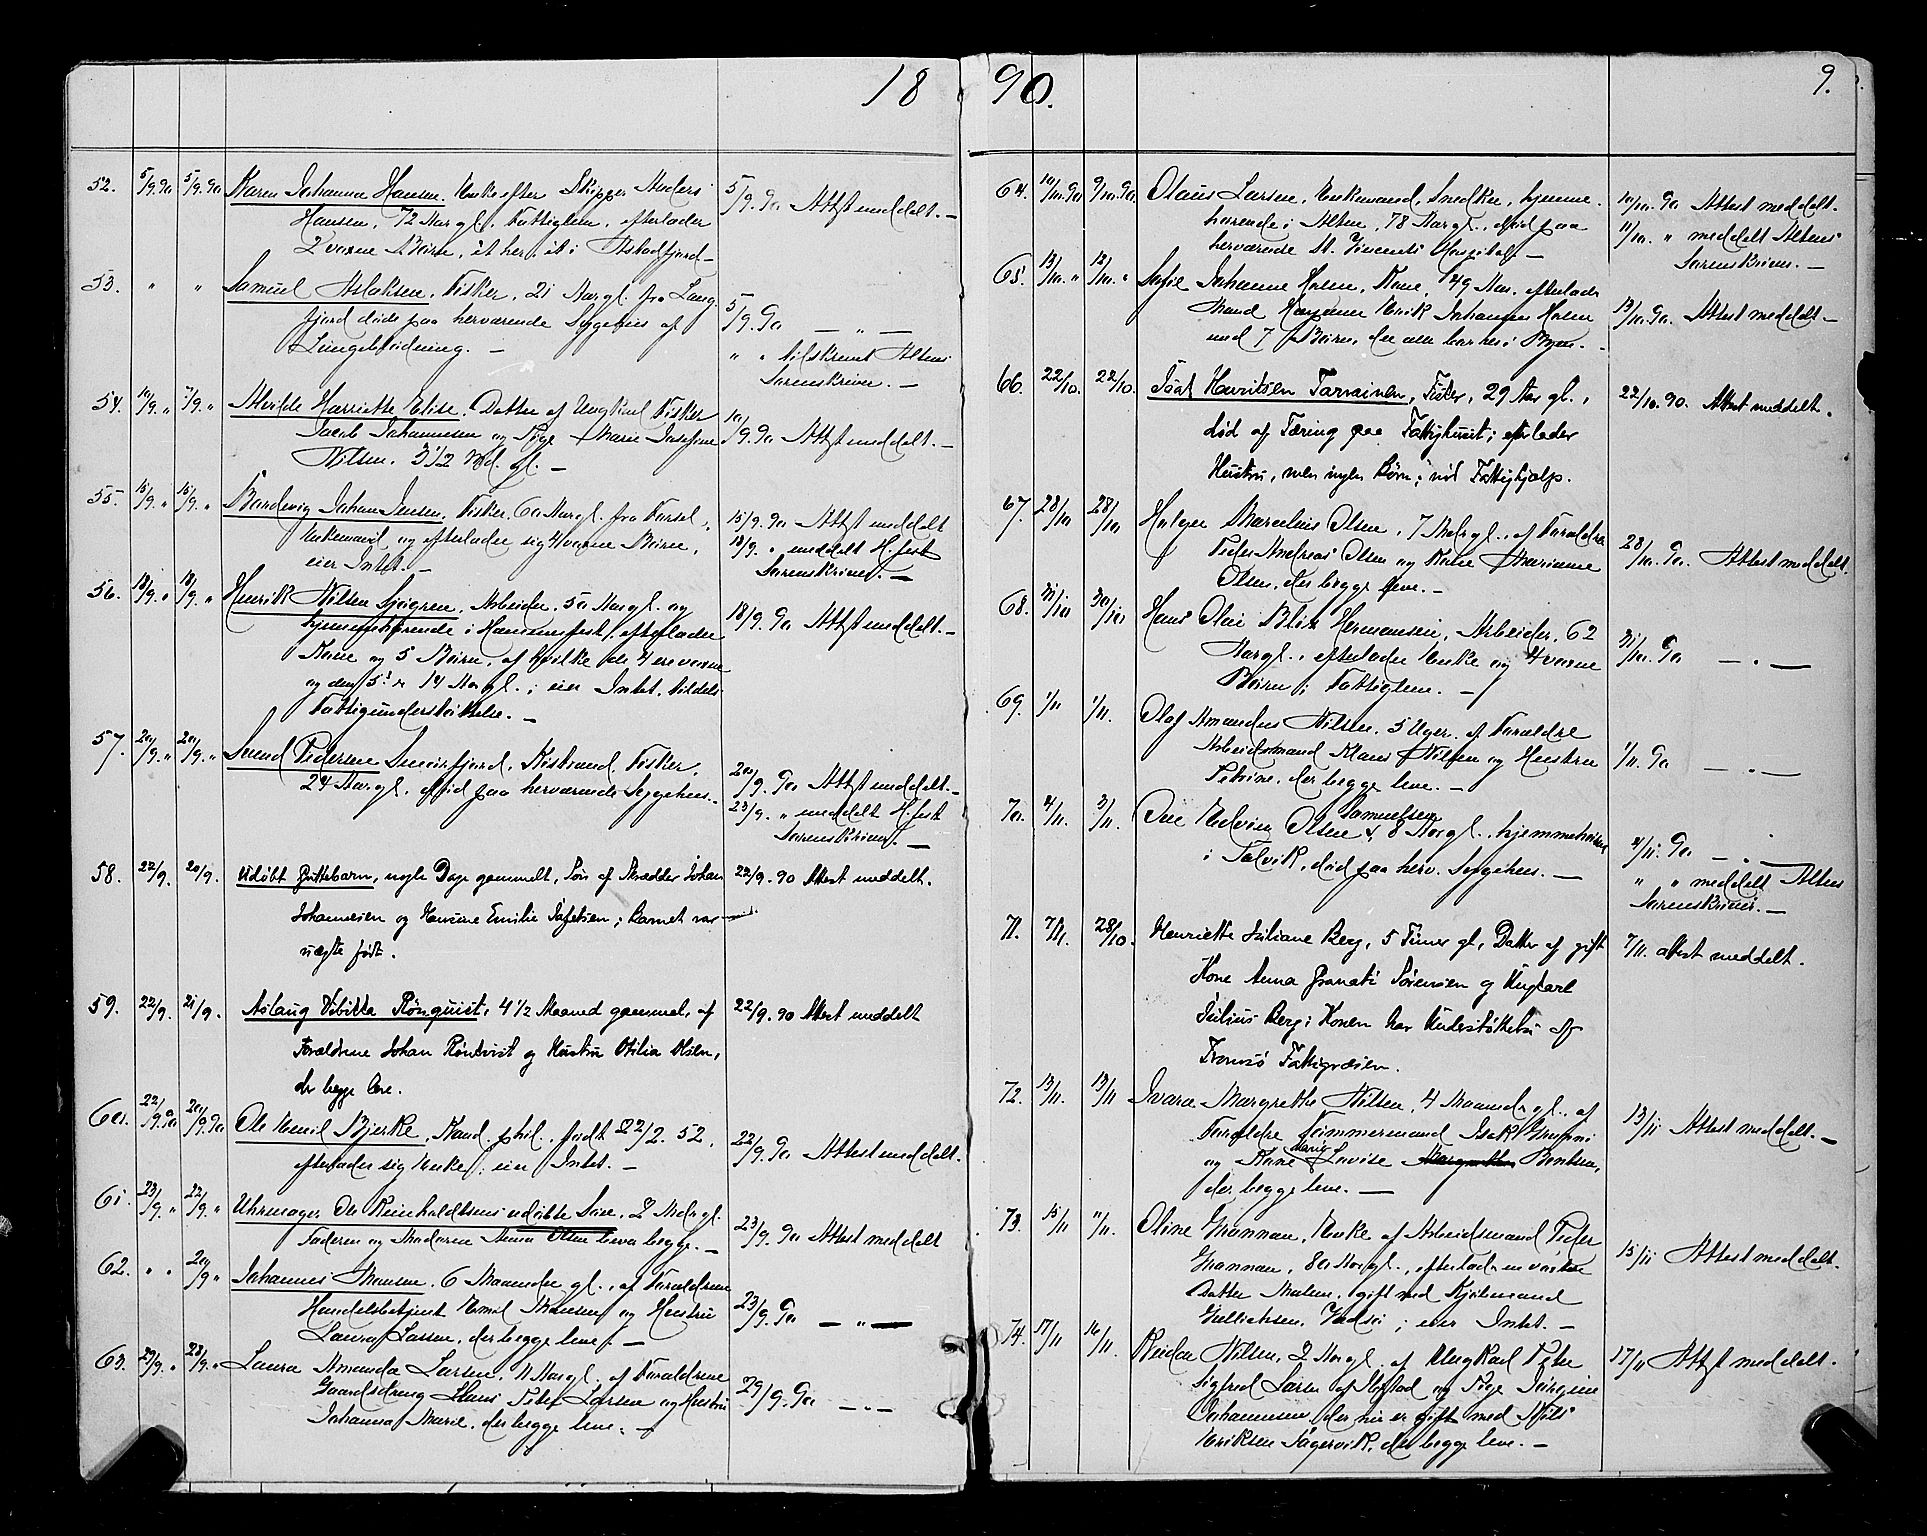 1890.
9.
52. 5/9.90 5/9.90 Karen Johanna Hansen. Enke efter Skipper Anders 5/9.90 Attest meddelt. —
Hansen, 72 Aar gl. Fattiglem, efterlader
2 voxne Børn, et her, et i Ofstadfjord —
53. " " Samuel Aslaksen. Fisker, 21 Aar gl. fra Lang-
fjord døde paa herværende Sygehus af 5/9.90 — " —
Lungebetændning. — " " tilskrevet Altens
Sorenskriver. —
54. 10/9. " 7/9. " Alvilde Harriette Elise. Datter af Ungkarl Fisker
Jacob Johannesen og Pige Marie Josefine 10/9.90 Attest meddelt. —
Nilsen, 3 1/2 Md. gl. —
55. 15/9. " 15/9. " Johan Jensen. Fisker. 60 Aar gl. fra 15/9.90 Attest meddelt
Enkemand og efterlader sig 4 voxne Børn, 18/9. " meddelt H.fest
eier Intet. — Sorenskriver. —
56. 18/9. " 18/9. " Henrik Nilsen Sjøgren. Arbeider. 50 Aar gl. og 18/9.90 Attest meddelt. —
hjemmehørende i Hammerfest, efterlader
Kone og 5 Børn, af hvilke de 4 ere voxne
og den 5te 14 Aar gl.; eier Intet. Tildels
Fattigunderstøttelse. —
57. 20/9. " 20/9. " Svend Pedersen Smørfjord, Kistrand. Fisker. 20/9.90 Attest meddelt. —
24 Aar gl. død paa herværende Sygehus. 23/9. " meddelt H.fest
Sorenskriver. —
58. 22/9. 20/9. Udøbt Guttebarn, nogle Dage gammelt, Søn af Skrædder Johan 22/9.90 Attest meddelt.
Johannesen og Emilie; Barnet var
uægte født.
59. 22/9. 21/9. Aslaug Rønquist, 4 1/2 Maaned gammel, af 22/9.90 Attest meddelt
Forældrene Johan Rønkvist og Hustru Otilia Olsen,
der begge leve.
60. 22/9.90 20/9.90 Ole Emil Bjerke, Kand. phil. født 22/2.52, 22/9.90 Attest meddelt.
efterlader sig Enke; eier Intet. —
61. 23/9. " 22/9. " Uhrmager Ole Reinholdtsens udøbte Søn, 2 Mdr gl. 23/9.90 Attest meddelt
Faderen og Moderen Anna Olsen lever begge. —
62. " " 20/9 " Johannes Monsen. 6 Maaneder gl., af Forældrene
Handelsbetjent Emil Monsen og Hustru 23/9.90 — " —
Laura Larsen, der begge leve. —
63. 29/9. " 28/9. " Laura Amanda Larsen, 11 Aar gl. af Forældrene
Gaardsdreng Hans Peter Larsen og Hustru 29/9.90 — " —
Johanna Marie, der begge leve. —
64. 10/10.90 9/10.90. Olaus Larsen, Enkemand, Snedker, hjemme- 10/10.90 Attest meddelt.
hørende i Alten, 78 Aar gl., død paa 11/10. " meddelt Altens
herværende St. Vincents Hospital. — Sorenskriver. —
65. 13/10. " 12/10. " Sofie Johanne Holm, Kone, 49 Aar, efterlader
Mand Erik Johannes Holm 13/10.90. Attest meddelt —
med 7 Børn, der alle bor her i Byen. —
66. 22/10. 22/10. Henriksen Tarvainen, Fisker, 29 Aar gl., 22/10.90. Attest meddelt.
død af Tæring paa Fattighuset; efterlader
Hustru, men ingen Børn; nød Fattighjælp.
67. 28/10 28/10 Holger Marcelius Olsen, 7 Mdr gl., af Forældre
Peder Andreas Olsen og Kone Marianne 28/10.90. Attest meddelt.
Olsen, der begge leve. —
68. 31/10 30/10 Hans Olai Blix Hermansen, Arbeider, 62
Aar gl., efterlader Enke og 4 voxne 31/10.90 — " —
Børn; Fattiglem. —
69. 1/11 1/11. Olaf Amandus Nilsen. 5 Uger. af Forældre
Arbeidsmand Klaus Nilsen og Hustru 1/11.90 — " —
Petrine, der begge leve. —
70. 4/11. 3/11. Ole Edvin Olsen Samuelsen, 8 Aar gl., hjemmehørende
i Talvik, død paa herv. Sygehus. — 4/11.90 — " —
" " meddelt Altens
Sorenskriver. —
71. 7/11. 28/10. Henriette Juliane Berg, 5 Timer gl, Datter af gift 7/11. Attest meddelt.
Kone Anna Sørensen og Ungkarl
Julius Berg; Konen har Understøttelse af
Tromsø Fattigvæsen.
72. 13/11. 13/11 Margrethe Nilsen, 4 Maaneder gl., af
Forældre Tømmermand Isak 13/11 Attest meddelt. —
og Kone Marie Lovise Bentsen,
der begge leve. —
73. 15/11 11/11. Oline Grannan, Enke af Arbeidsmand Peder
Grannan, 80 Aar gl., efterlader en voxen 15/11 Attest meddelt.
Datter Malene, gift med Kjøbmand
Vadsø; eier Intet. —
74. 17/11 16/11. Reidar Nilsen, 2 Aar gl. af Ungkarl Peter 17/11 Attest meddelt.
Sigfred Larsen af og Pige Jørgine
Johannesen, der nu er gift med Nils
Eriksen Jægervik, der begge leve. —